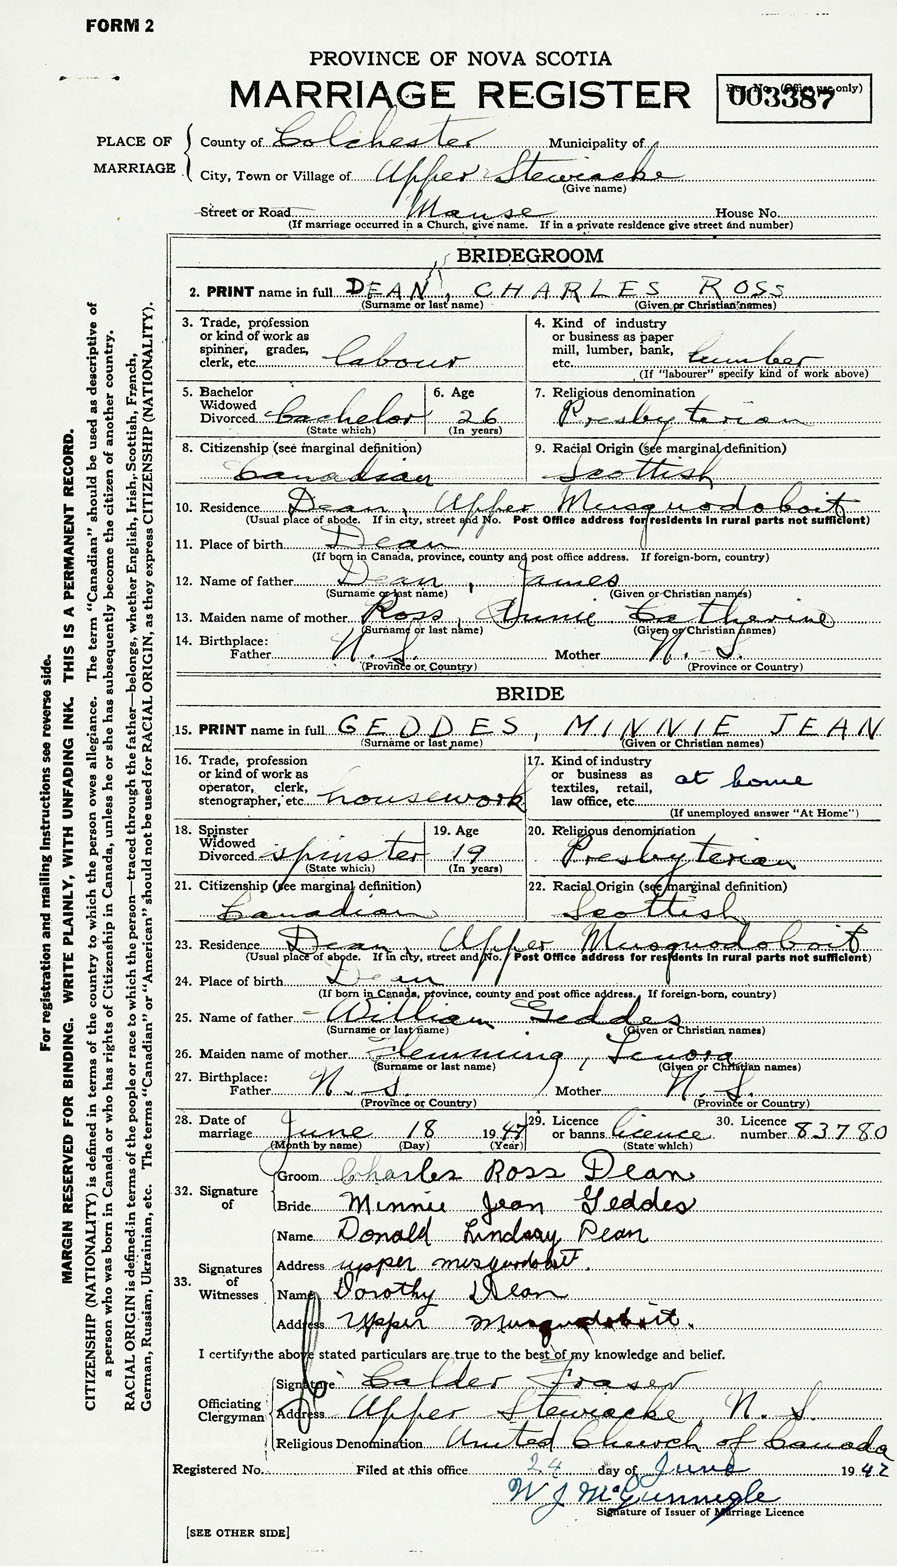 FORM 2
PROVINCE OF NOVA SCOTIA
MARRIAGE REGISTER
Reg. No. (Office use only)
003387
PLACE OF MARRIAGE
County of Colchester Municipality of
City, Town or Village of Upper Stewiacke
(Give name)
Street or Road Manse House No.
(If marriage occurred in a Church, give name. If in a private residence give street and number)
BRIDEGROOM
2. PRINT name in full DEAN, CHARLES ROSS
(Surname or last name) (Given or Christian names)
3. Trade, profession or kind of work as spinner, grader, clerk, etc. labour
4. Kind of industry or business as paper mill, lumber, bank, etc. lumber
(If "labourer" specify kind of work above)
5. Bachelor Widowed Divorced bachelor
(State which)
6. Age 26
(In years)
7. Religious denomination Presbyterian
8. Citizenship (see marginal definition) Canadian
9. Racial Origin (see marginal definition) Scottish
10. Residence Dean, Upper Musquodoboit
(Usual place of abode. If in city, street and No. Post Office address for residents in rural parts not sufficient)
11. Place of birth Dean
(If born in Canada, province, county and post office address. If foreign-born, country)
12. Name of father Dean, James
(Surname or last name) (Given or Christian names)
13. Maiden name of mother Ross, Annie Catherine
(Surname or last name) (Given or Christian names)
14. Birthplace: Father N.S. Mother N.S.
(Province or Country) (Province or Country)
BRIDE
15. PRINT name in full GEDDES, MINNIE JEAN
(Surname or last name) (Given or Christian names)
16. Trade, profession or kind of work as operator, clerk, stenographer, etc. housework
17. Kind of industry or business as textiles, retail, law office, etc. at home
(If unemployed answer "At Home")
18. Spinster Widowed Divorced spinster
(State which)
19. Age 19
(In years)
20. Religious denomination Presbyterian
21. Citizenship (see marginal definition) Canadian
22. Racial Origin (see marginal definition) Scottish
23. Residence Dean, Upper Musquodoboit
(Usual place of abode. If in city, street and No. Post Office address for residents in rural parts not sufficient)
24. Place of birth Dean
(If born in Canada, province, county and post office address. If foreign-born, country)
25. Name of father William Geddes
(Surname or last name) (Given or Christian names)
26. Maiden name of mother Flemming, Lenora
(Surname or last name) (Given or Christian names)
27. Birthplace: Father N.S. Mother N.S.
(Province or Country) (Province or Country)
28. Date of marriage June 18 1942
(Month by name) (Day) (Year)
29. Licence or banns licence
(State which)
30. Licence number 83780
32. Signature of
Groom Charles Ross Dean
Bride Minnie Jean Geddes
33. Signatures of Witnesses
Name Donald Lindsay Dean
Address upper musquodobit.
Name Dorothy Dean
Address Upper Musquodoboit.
I certify the above stated particulars are true to the best of my knowledge and belief.
Officiating Clergyman
Signature Calder Fraser
Address Upper Stewiacke, N.S.
Religious Denomination United Church of Canada
Registered No. Filed at this office 24 day of June 1942
W J McGunnigle
Signature of Issuer of Marriage Licence
[SEE OTHER SIDE]
For registration and mailing instructions see reverse side.
MARGIN RESERVED FOR BINDING. WRITE PLAINLY, WITH UNFADING INK. THIS IS A PERMANENT RECORD.
CITIZENSHIP (NATIONALITY) is defined in terms of the country to which the person owes allegiance. The term "Canadian" should be used as descriptive of
a person who was born in Canada or who has rights of Citizenship in Canada, unless he or she has subsequently become the citizen of another country.
RACIAL ORIGIN is defined in terms of the people or race to which the person—traced through the father—belongs, whether English, Irish, Scottish, French,
German, Russian, Ukrainian, etc. The terms "Canadian" or "American" should not be used for RACIAL ORIGIN, as they express CITIZENSHIP (NATIONALITY).